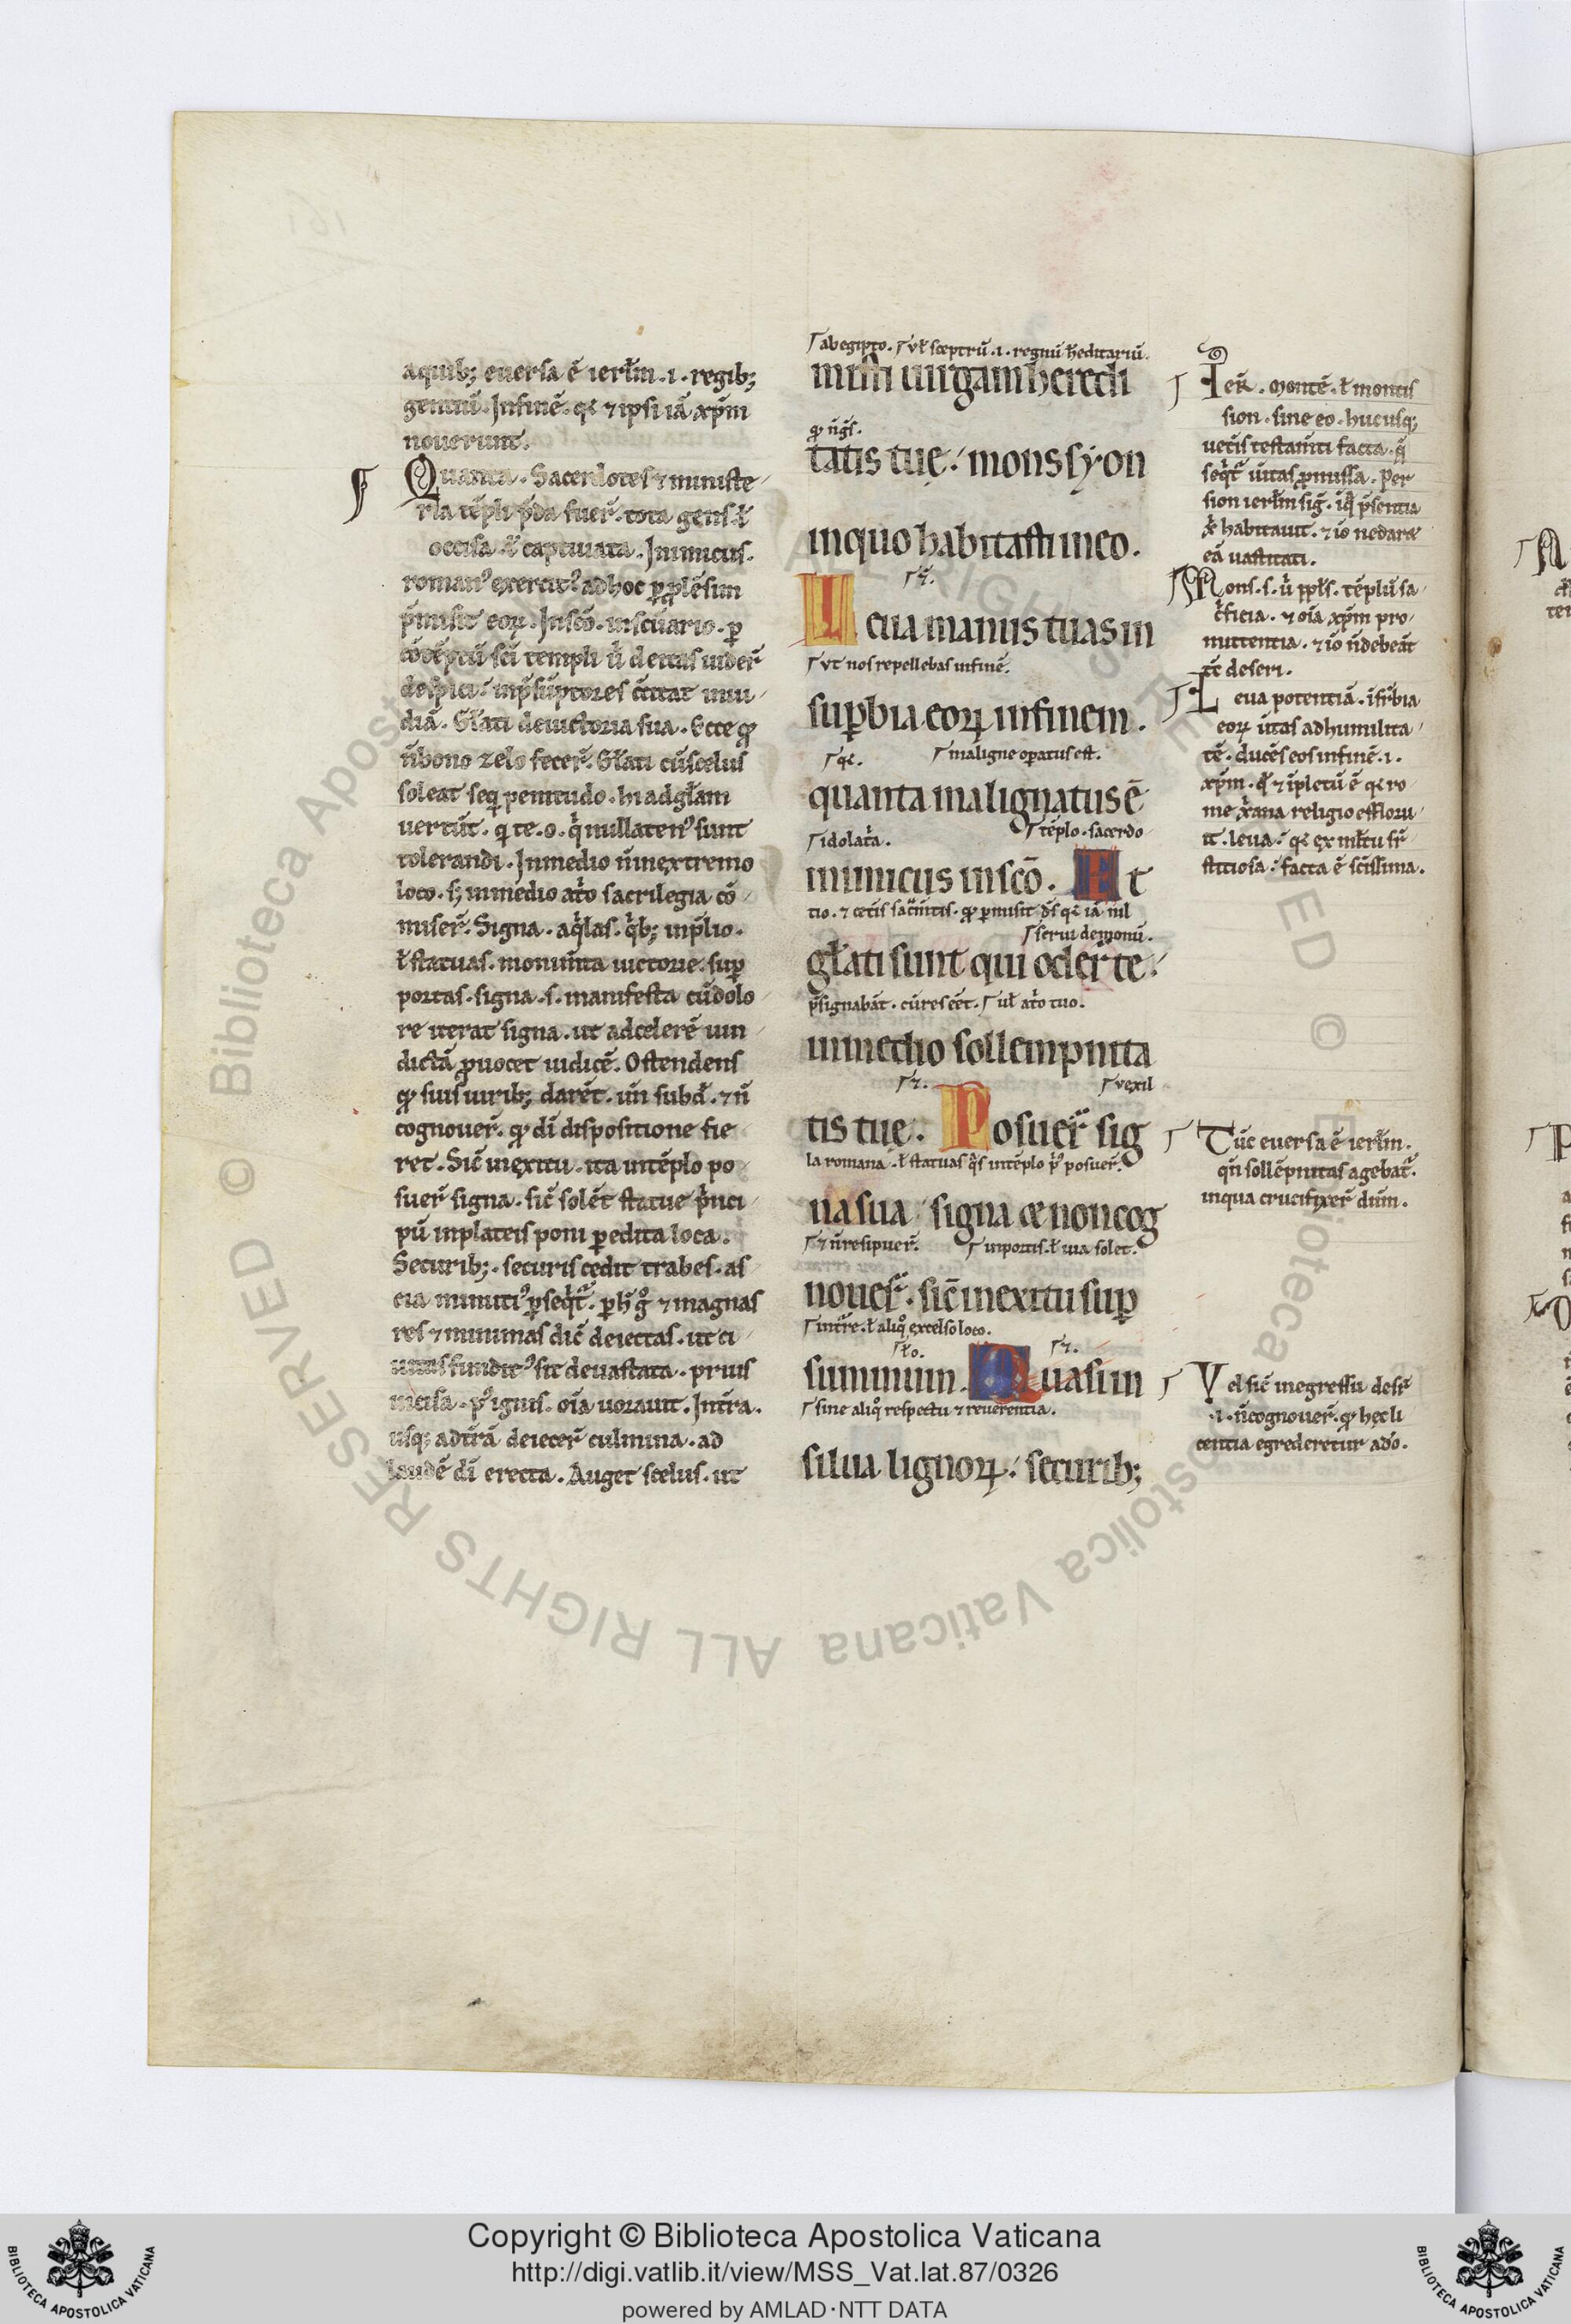 aquib; euersa ē ierłm .i. regib;
gentiū. Infinē. qꝛ ⁊ ipsi iā xp̄m
nouerunt.
Quanta. Sacerdotes ⁊ ministe
ria tēpli p̄da fuer̄. tota gens ł
occisa ł captiuata. Inimicus.
roman᷒ exercit᷒ adhoc
p̄misit eoꝝ. Inscō. inscūario. ꝑ
cōtēptū sc̄i templi ū deitas uider̄
despici. inp̄sūptores
diā. Głati deuictoria sua. Ecce
n̄ bono zelo fecer̄. Głati cū scelus
soleat seq̄ penitudo. hi adgłam
uertūt. q te .o. nullaten᷒ sunt
tolerandi. Inmedio n̄ inextremo
loco. s; inmedio at̓o sacrilegia cō
miser̄. Signa. aq̓las. q̓b; inp̄lio.
ł statuas. monum̄ta uictorie. suꝑ
portas. signa .s. manifesta cū dolo
re iterat signa. ut adcelerē uin
dictā ꝓuocet iudicē. Ostendens
suis uirib; darēt. un̄ subd̓. ⁊ n̄
cognouer̄. di dispositione fie
ret. Sic̄ inexitu. ita intēplo po
suer̄ signa. sic̄ solēt statue p̓nci
pū inplateis poni ꝑ edita loca.
Securib;. securis cedit trabes. as
cia minuti᷒ ꝑseq̓t᷒. ⁊ magnas
res ⁊ minimas dic̄ deiectas. ut ci
uitas fundit᷒ sit deuastata. prius
incisa. p᷒ ignis. oīa uorauit. Intra.
usq; adt̄rā deiecer̄ culmina. ad
laudē dī erecta. Auget scelus. ut
ab egipto. vł sceptrū .i. regnū hēditariū.
misti uirgam heredi
tatis tuę: mons syon
inquo habitasti ineo.
Leua manus tuas in
vt nos repellebas infinē.
suꝑbia eoꝝ infinem.
qꝛ. maligne oꝑatus est.
quanta malignatus ē
idolat̓a. tēplo. sacerdo
inimicus inscō. Et
tio. ⁊ cet̓is sac̄m̄tis. ꝑmisit d̄s qꝛ iā nil
serui demonū.
głati sunt qui oder̄ te:
p̄signabāt. cū res eēt. uł at̓o tuo.
inmedio sollempnita
vexil
tis tuę. Posuer̄ sig
la romana. ł statuas intēplo p᷒ posuer̄.
na sua signa ⁊ non cog
⁊ n̄ resipuer̄. inportis. ł uia solet.
nouer̄. sic̄ inexitu suꝑ
int̓re. ł aliq̓ excelso loco.
summum. Quasi in
sine aliq̓ respectu ⁊ reuerentia.
silua lignoꝝ: securib;
Ier̄. montē. ł montis
sion. sine eo. hucusq;
uet̓is testam̄ti facta.
seq̓t᷒ ūitas ꝓmissa. Per
sion ierłm sig̓. p̄sentia
x̄ habitauit. ⁊ iō ne dare
eā uastitati.
Mons .s. tēplū sa
c̓ficia. ⁊ oīa xp̄m pro
mittentia. ⁊ iō n̄ debeāt
deseri.
Leua potentiā.
eoꝝ ūtas adhumilita
tē. ducēs eos infinē .i.
xp̄m. ⁊ īpletū ē qꝛ ro
me x̄iana religio efflorui
it. leua. qꝛ
stitiosa. facta ē sc̄issima.
Tūc euersa ē ierłm.
qn̄ sollēpnitas agebat᷒.
inqua crucifixer̄ dūm.
Vel sic̄ inegressu
.i. n̄ cognouer̄.
centia egrederetur ad̄o.
Copyright © Biblioteca Apostolica Vaticana
http://digi.vatlib.it/view/MSS_Vat.lat.87/0326
powered by AMLAD·NTT DATA
BIBLIOTECA APOSTOLICA VATICANA
BIBLIOTECA APOSTOLICA VATICANA
© Biblioteca Apostolica Vaticana ALL RIGHTS RESERVED